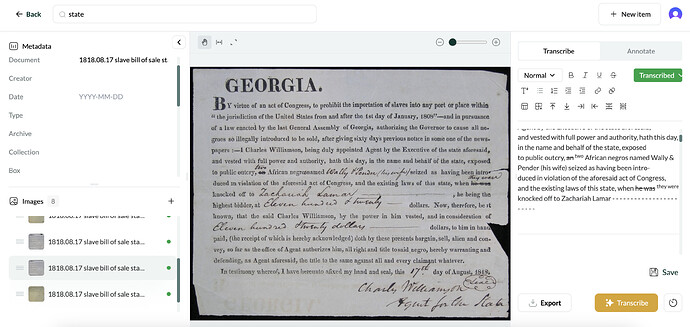 Back
state
New item
Metadata
Document 1818.08.17 slave bill of sale st.
Creator
Date YYYY-MM-DD
Type
Archive
Collection
Box
Images 8
1818.08.17 slave bill of sale sta...
1818.08.17 slave bill of sale sta...
1818.08.17 slave bill of sale sta...
1818.08.17 slave bill of sale sta...
GEORGIA.
BY virtue of an act of Congress, to prohibit the importation of slaves into any port or place within
"the jurisdiction of the United States from and after the 1st day of January, 1808"—and in pursuance
of a law enacted by the last General Assembly of Georgia, authorizing the Governor to cause all ne-
groes so illegally introduced to be sold, after giving sixty days previous notice in some one of the news-
papers :—I Charles Williamson, being duly appointed Agent by the Executive of the state aforesaid,
and vested with full power and authority, hath this day, in the name and behalf of the state, exposed
to public outcry, an two African negroes named Wally & Pender (his wife) seized as having been intro-
duced in violation of the aforesaid act of Congress, and the existing laws of this state, when he was they were
knocked off to Zachariah Lamar , he being the
highest bidder, at Eleven hundred & twenty dollars. Now, therefore, be it
known, that the said Charles Williamson, by the power in him vested, and in consideration of
Eleven hundred & twenty dollars dollars, to him in hand
paid, (the receipt of which is hereby acknowledged) doth by these presents bargain, sell, alien and con-
vey, so far as the office of Agent authorizes him, all right and title to said negro, hereby warranting and
defending, as Agent aforesaid, the title to the same against all and every claimant whatever.
In testimony whereof, I have hereunto affixed my hand and seal, this 17th day of August, 1818.
Charles Williamson Seal
Agent for the State
Transcribe
Annotate
Normal
B I U S
Transcribed
and vested with full power and authority, hath this day,
in the name and behalf of the state, exposed
to public outcry, an two African negros named Wally &
Pender (his wife) seized as having been intro-
duced in violation of the aforesaid act of Congress,
and the existing laws of this state, when he was they were
knocked off to Zachariah Lamar - - - - - - - - - - - - - - - -
- - - - -
Save
Export
Transcribe